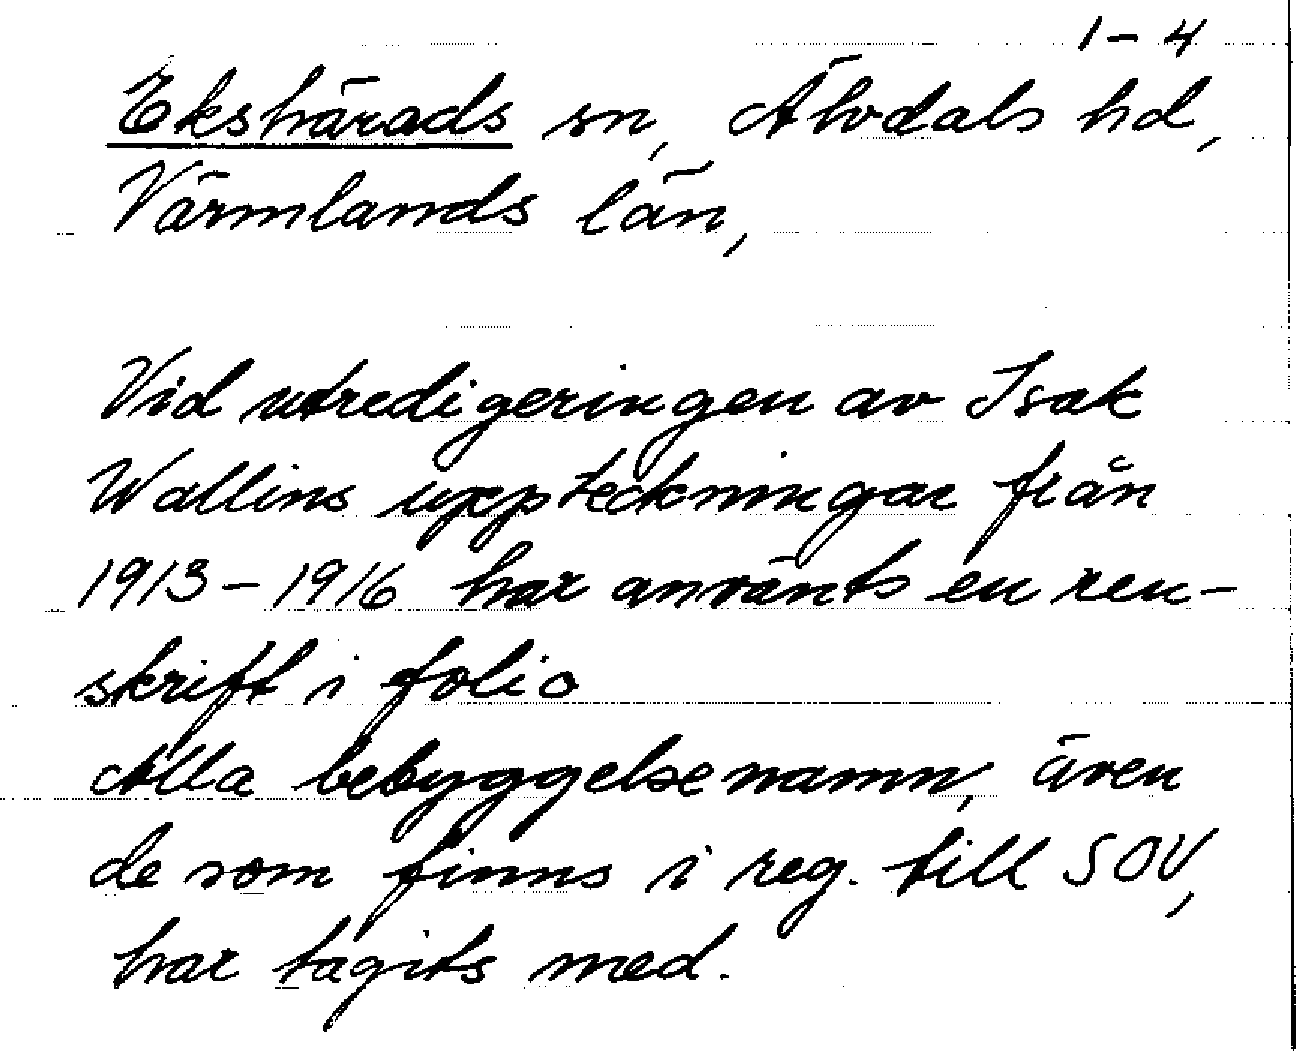 1-4
Ekshärads sn, Älvdals hd,
Värmlands län,
Vid utredigeringen av Isak
Wallins uppteckningar från
1913-1916 har använts en ren-
skrift i folio
Alla bebyggelsenamn, även
de som finns i reg. till SOV,
har tagits med.